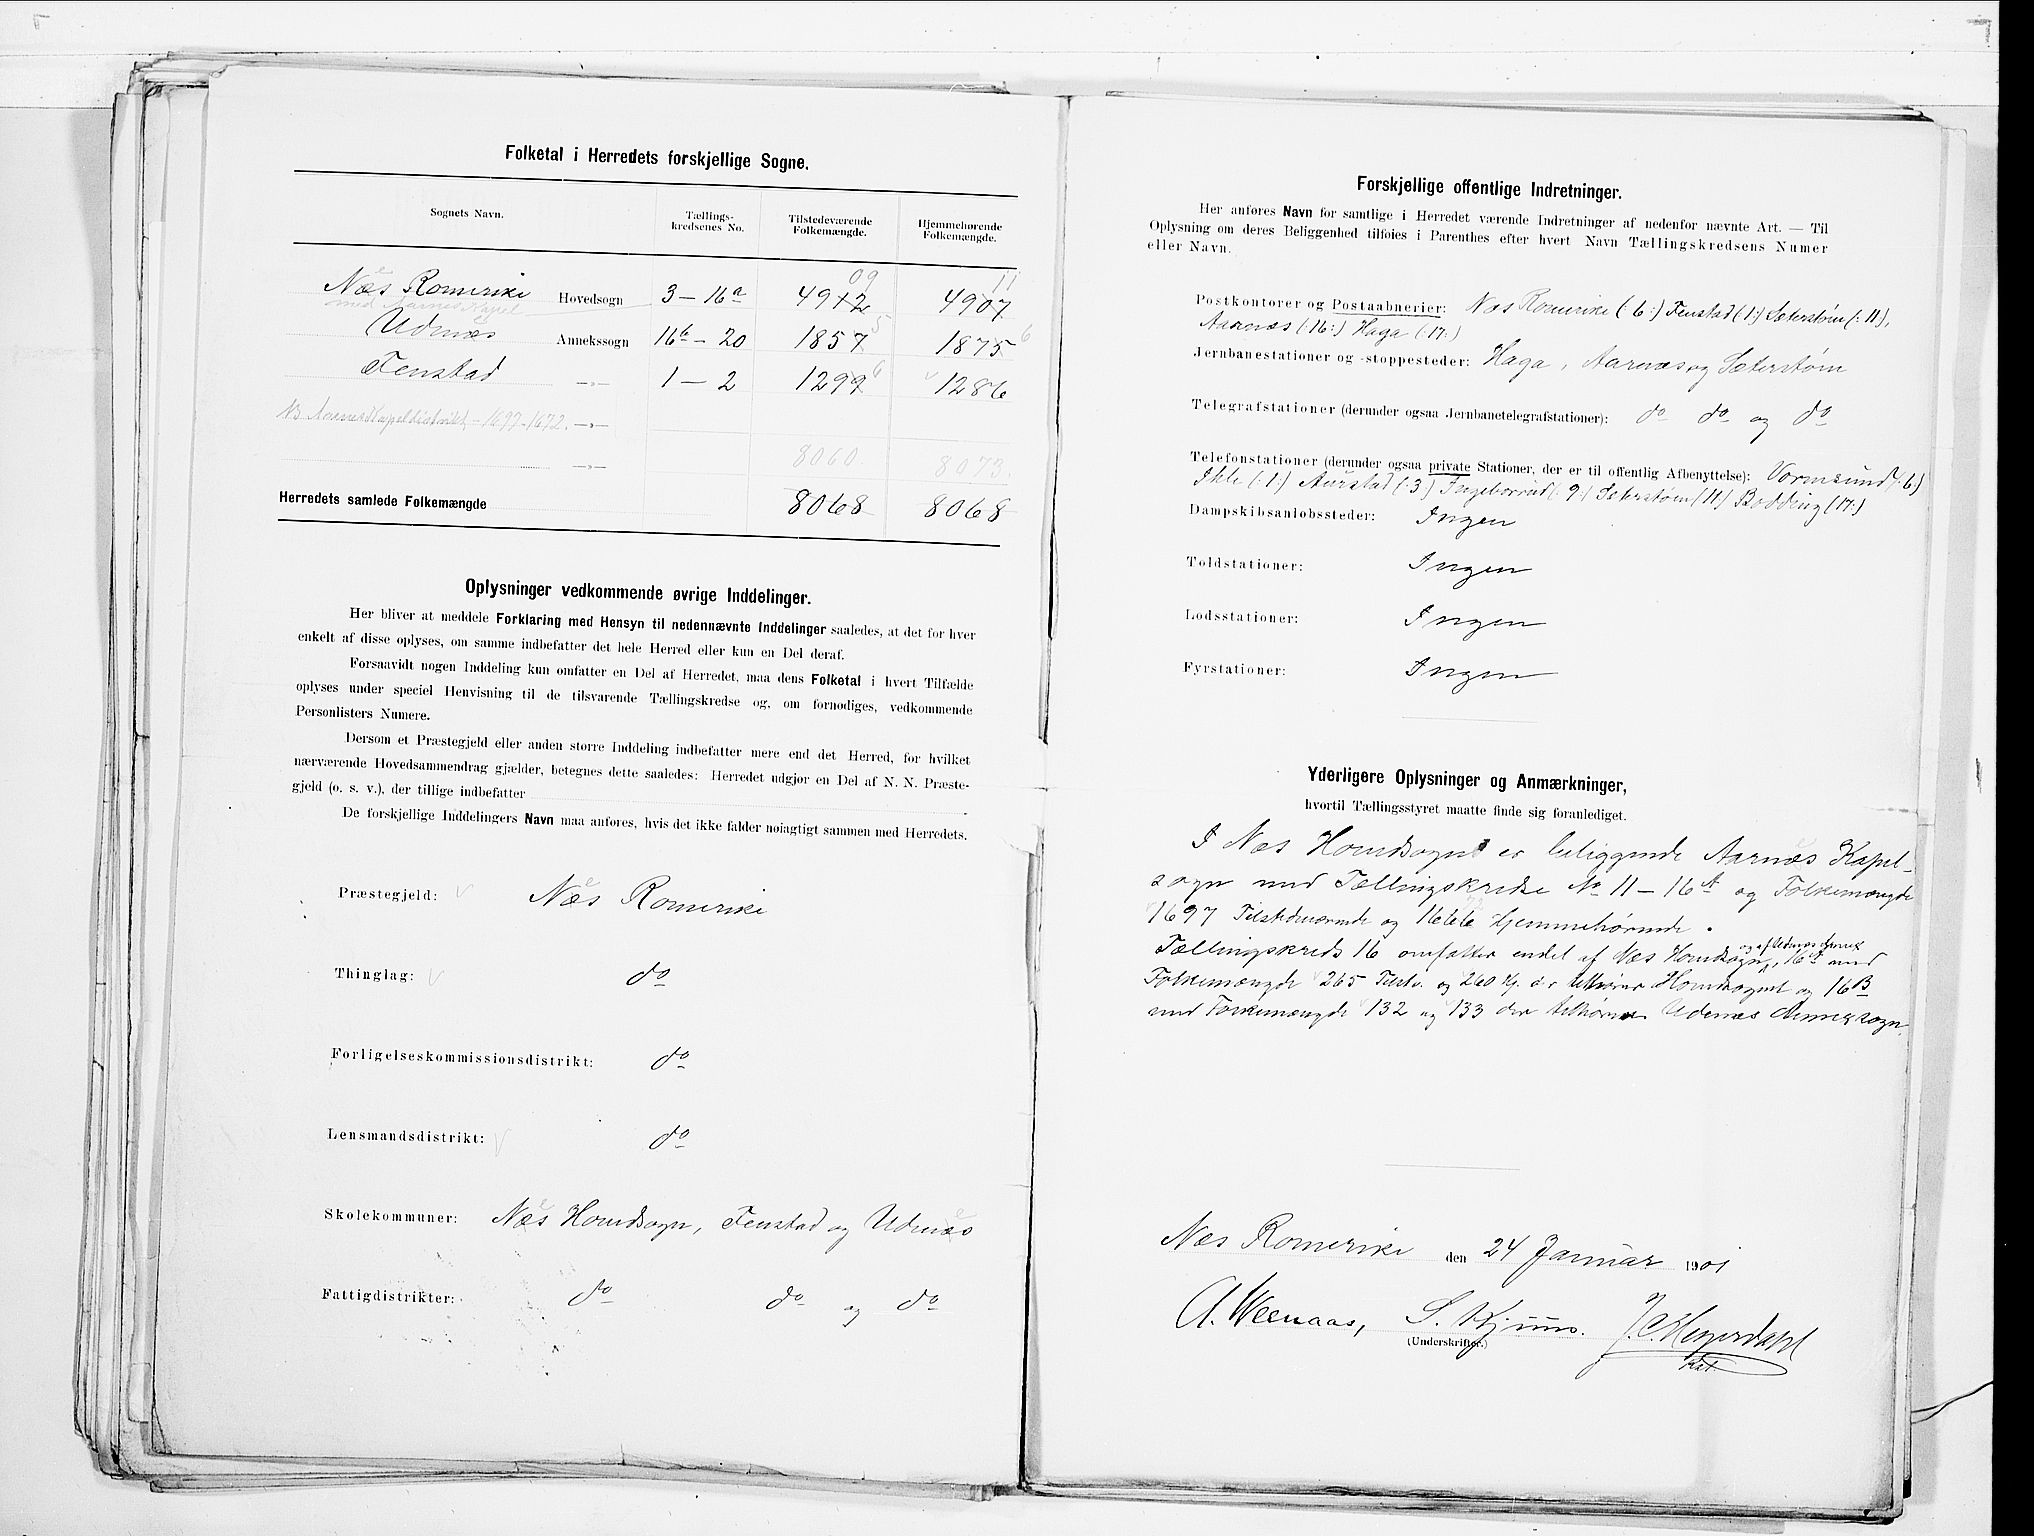 Folketal i Herredets forskjellige Sogne.
Sognets Navn.
Tællings-
kredsenes No.
Tilstedeværende
Folkemængde.
Hjemmehørende
Folkemængde.
09 11
Næs Romerike Hovedsogn 3 – 16a 4912 4907
med Aarnes Kapel
Udenæs Annekssogn 16b – 20 1857 5 1875 6
Fenstad —»— 1 – 2 1299 6 1286
NB Aarnes Kapeldistrikt – 1697 – 1672. —»—
—»— 8060 8073.
Herredets samlede Folkemængde 8068 8068
Oplysninger vedkommende øvrige Inddelinger.
Her bliver at meddele Forklaring med Hensyn til nedennævnte Inddelinger saaledes, at det for hver
enkelt af disse oplyses, om samme indbefatter det hele Herred eller kun en Del deraf.
Forsaavidt nogen Inddeling kun omfatter en Del af Herredet, maa dens Folketal i hvert Tilfælde
oplyses under speciel Henvisning til de tilsvarende Tællingskredse og, om fornødiges, vedkommende
Personlisters Numere.
Dersom et Præstegjeld eller anden større Inddeling indbefatter mere end det Herred, for hvilket
nærværende Hovedsammendrag gjælder, betegnes dette saaledes: Herredet udgjør en Del af N. N. Præste-
gjeld (o. s. v.), der tillige indbefatter
De forskjellige Inddelingers Navn maa anføres, hvis det ikke falder nøiagtigt sammen med Herredets.
Præstegjeld: Næs Romerike
Thinglag: do
Forligelseskommissionsdistrikt: do
Lensmandsdistrikt: do
Skolekommuner: Næs Hovedsogn, Fenstad og Udenæs
Fattigdistrikter: do do og do
Forskjellige offentlige Indretninger.
Her anføres Navn for samtlige i Herredet værende Indretninger af nedenfor nævnte Art. — Til
Oplysning om deres Beliggenhed tilføies i Parenthes efter hvert Navn Tællingskredsens Numer
eller Navn.
Postkontorer og Postaabnerier: Næs Romerike (: 6 :) Fenstad (: 1 :) Sæterstøm (: 11),
Aarnæs (: 16 :) Haga (: 17 :)
Jernbanestationer og -stoppesteder: Haga, Aarnæs og Sæterstøm
Telegrafstationer (derunder ogsaa Jernbanetelegrafstationer): do do og do
Telefonstationer (derunder ogsaa private Stationer, der er til offentlig Afbenyttelse): Vormsund (: 6 :)
Ihle (: 1 :) Aurstad (: 3 :) Ingeborrud (: 9 :) Sæterstøm (11) Bodding (17 :)
Dampskibsanløbssteder: Ingen
Toldstationer: Ingen
Lodsstationer: Ingen
Fyrstationer: Ingen
Yderligere Oplysninger og Anmærkninger,
hvortil Tællingsstyret maatte finde sig foranlediget.
I Næs Hovedsogn er beliggende Aarnæs Kapel-
sogn med Tællingskredse No 11 – 16A og Folkemængde
1697 Tilstedeværende og 1666 Hjemmehørende.
Tællingskreds 16 omfatter endel af Næs Hovedsogn og af Udenæs Annex, 16A med
Folkemængde 265 Tilstv. og 260 Hj. der tilhører Hovedsognet og 16B
med Folkemængde 132 og 133 der tilhører Udenæs Annexsogn.
Næs Romerike den 24 Januar 1901
A. Weenaas, S. Kjuus. J. C. Heyerdahl
(Underskrifter.)